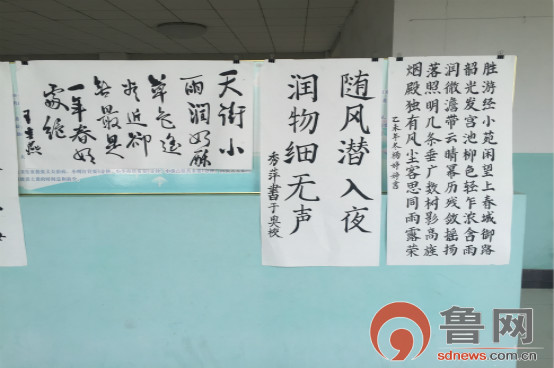 天街小
雨润如酥
草色遥
看近却
無最是
一年春好
處绝
随风潜入夜
润物细无声
秀萍書于
胜游经小苑闲望上春城御路
韶光发宫池柳色轻乍浓含雨
润微澹带云晴幂历残敛摇扬
落照明几条垂广数树影高旌
烟殿独有风尘客思同雨露荣
乙未年冬杨婷婷書
鲁网
sdnews.com.cn